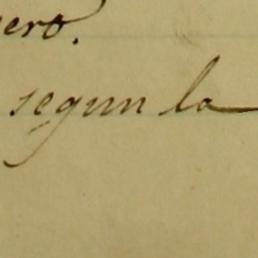 ero.
segun la